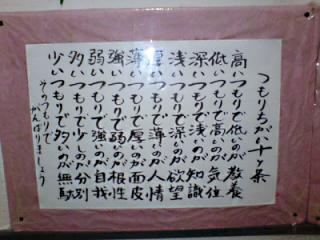 つもりちがい十ヶ条
高いつもりで低いのが教養
低いつもりで高いのが気位
深いつもりで浅いのが知識
浅いつもりで深いのが欲望
厚いつもりで薄いのが人情
薄いつもりで厚いのが面皮
強いつもりで弱いのが根性
弱いつもりで強いのが自我
多いつもりで少しのが分別
少いつもりで多いのが無駄
そのつもりで
がんばりましょう